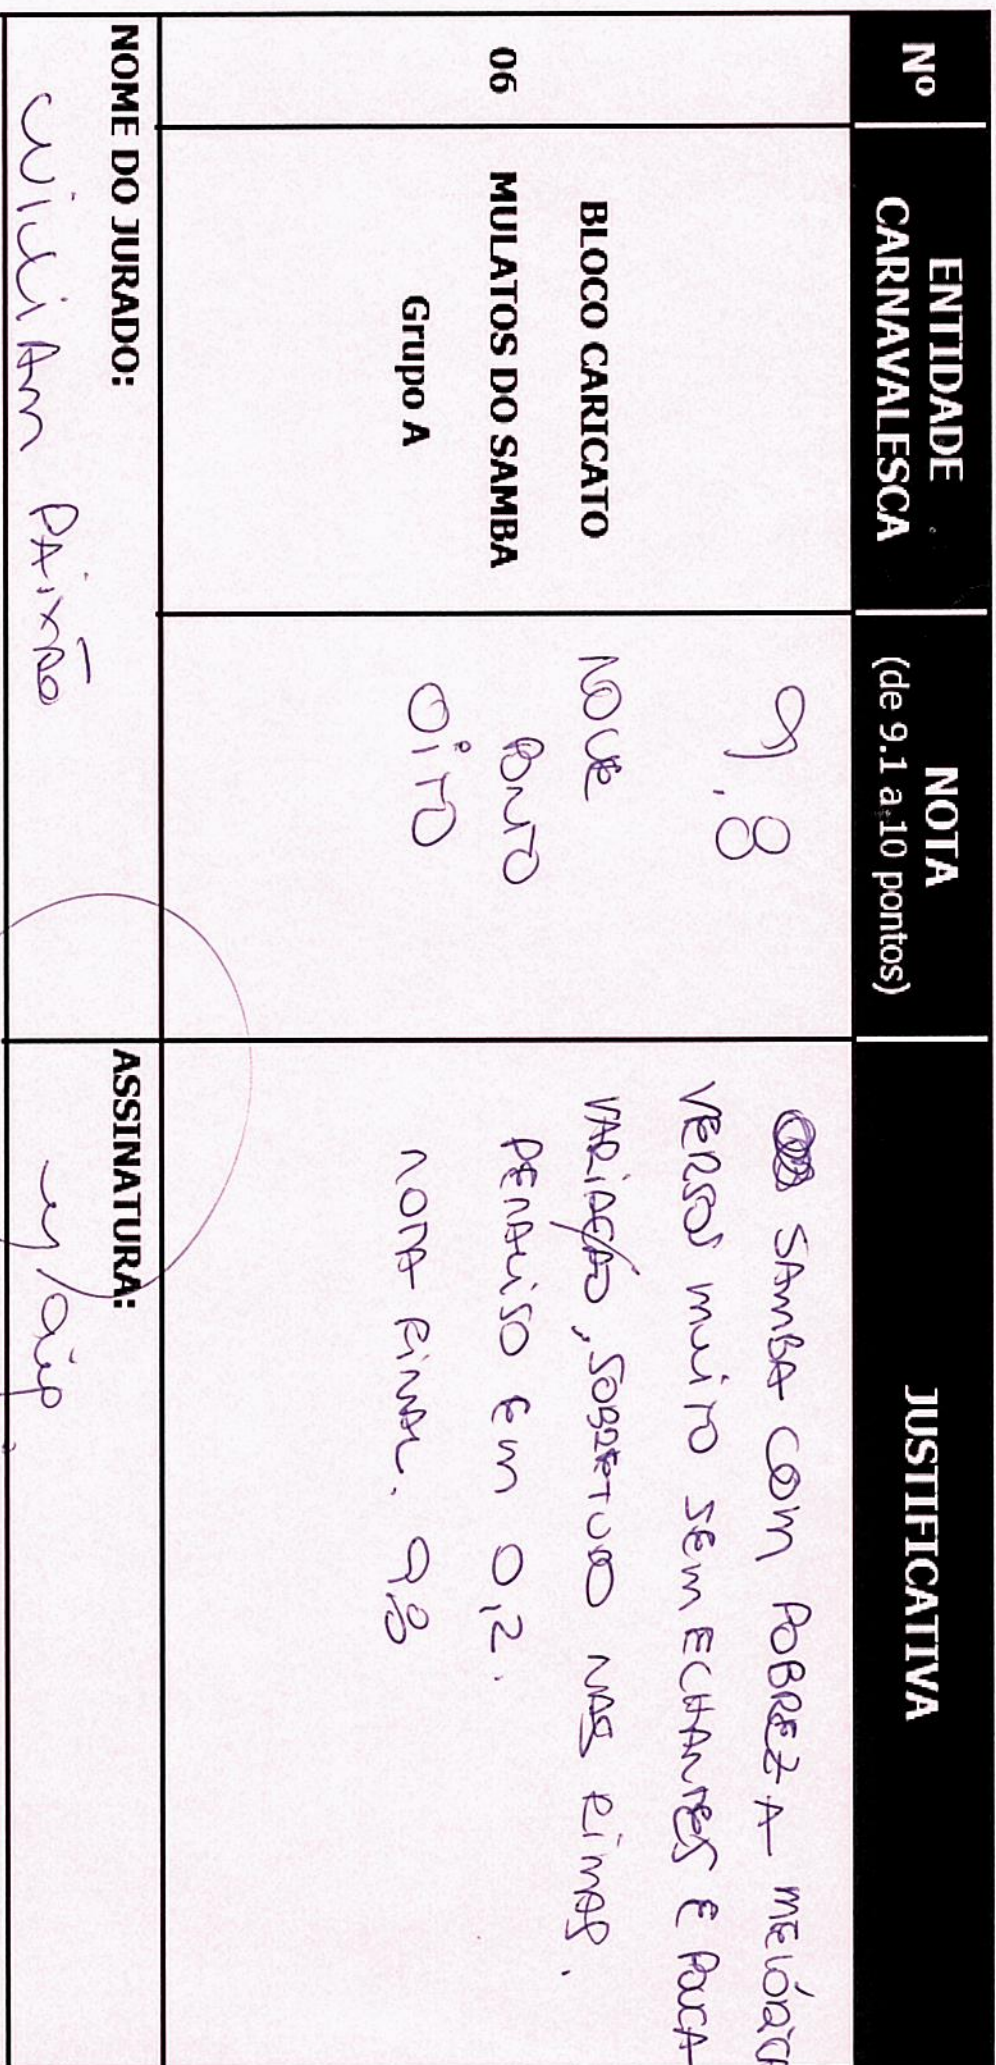 Nº
ENTIDADE
CARNAVALESCA
NOTA
(de 9.1 a 10 pontos)
JUSTIFICATIVA
06
BLOCO CARICATO
MULATOS DO SAMBA
Grupo A
9,8
NOVE
PONTO
OITO
SAMBA COM POBREZA MELÓDICA
VERSOS MUITO SEMECHANTES E POUCA
VARIAÇÃO, SOBRETUDO NAS RIMAS.
PENALISO EM 0,2.
NOTA FINAL. 9,8
NOME DO JURADO:
WILLIAM PAIXÃO
ASSINATURA: